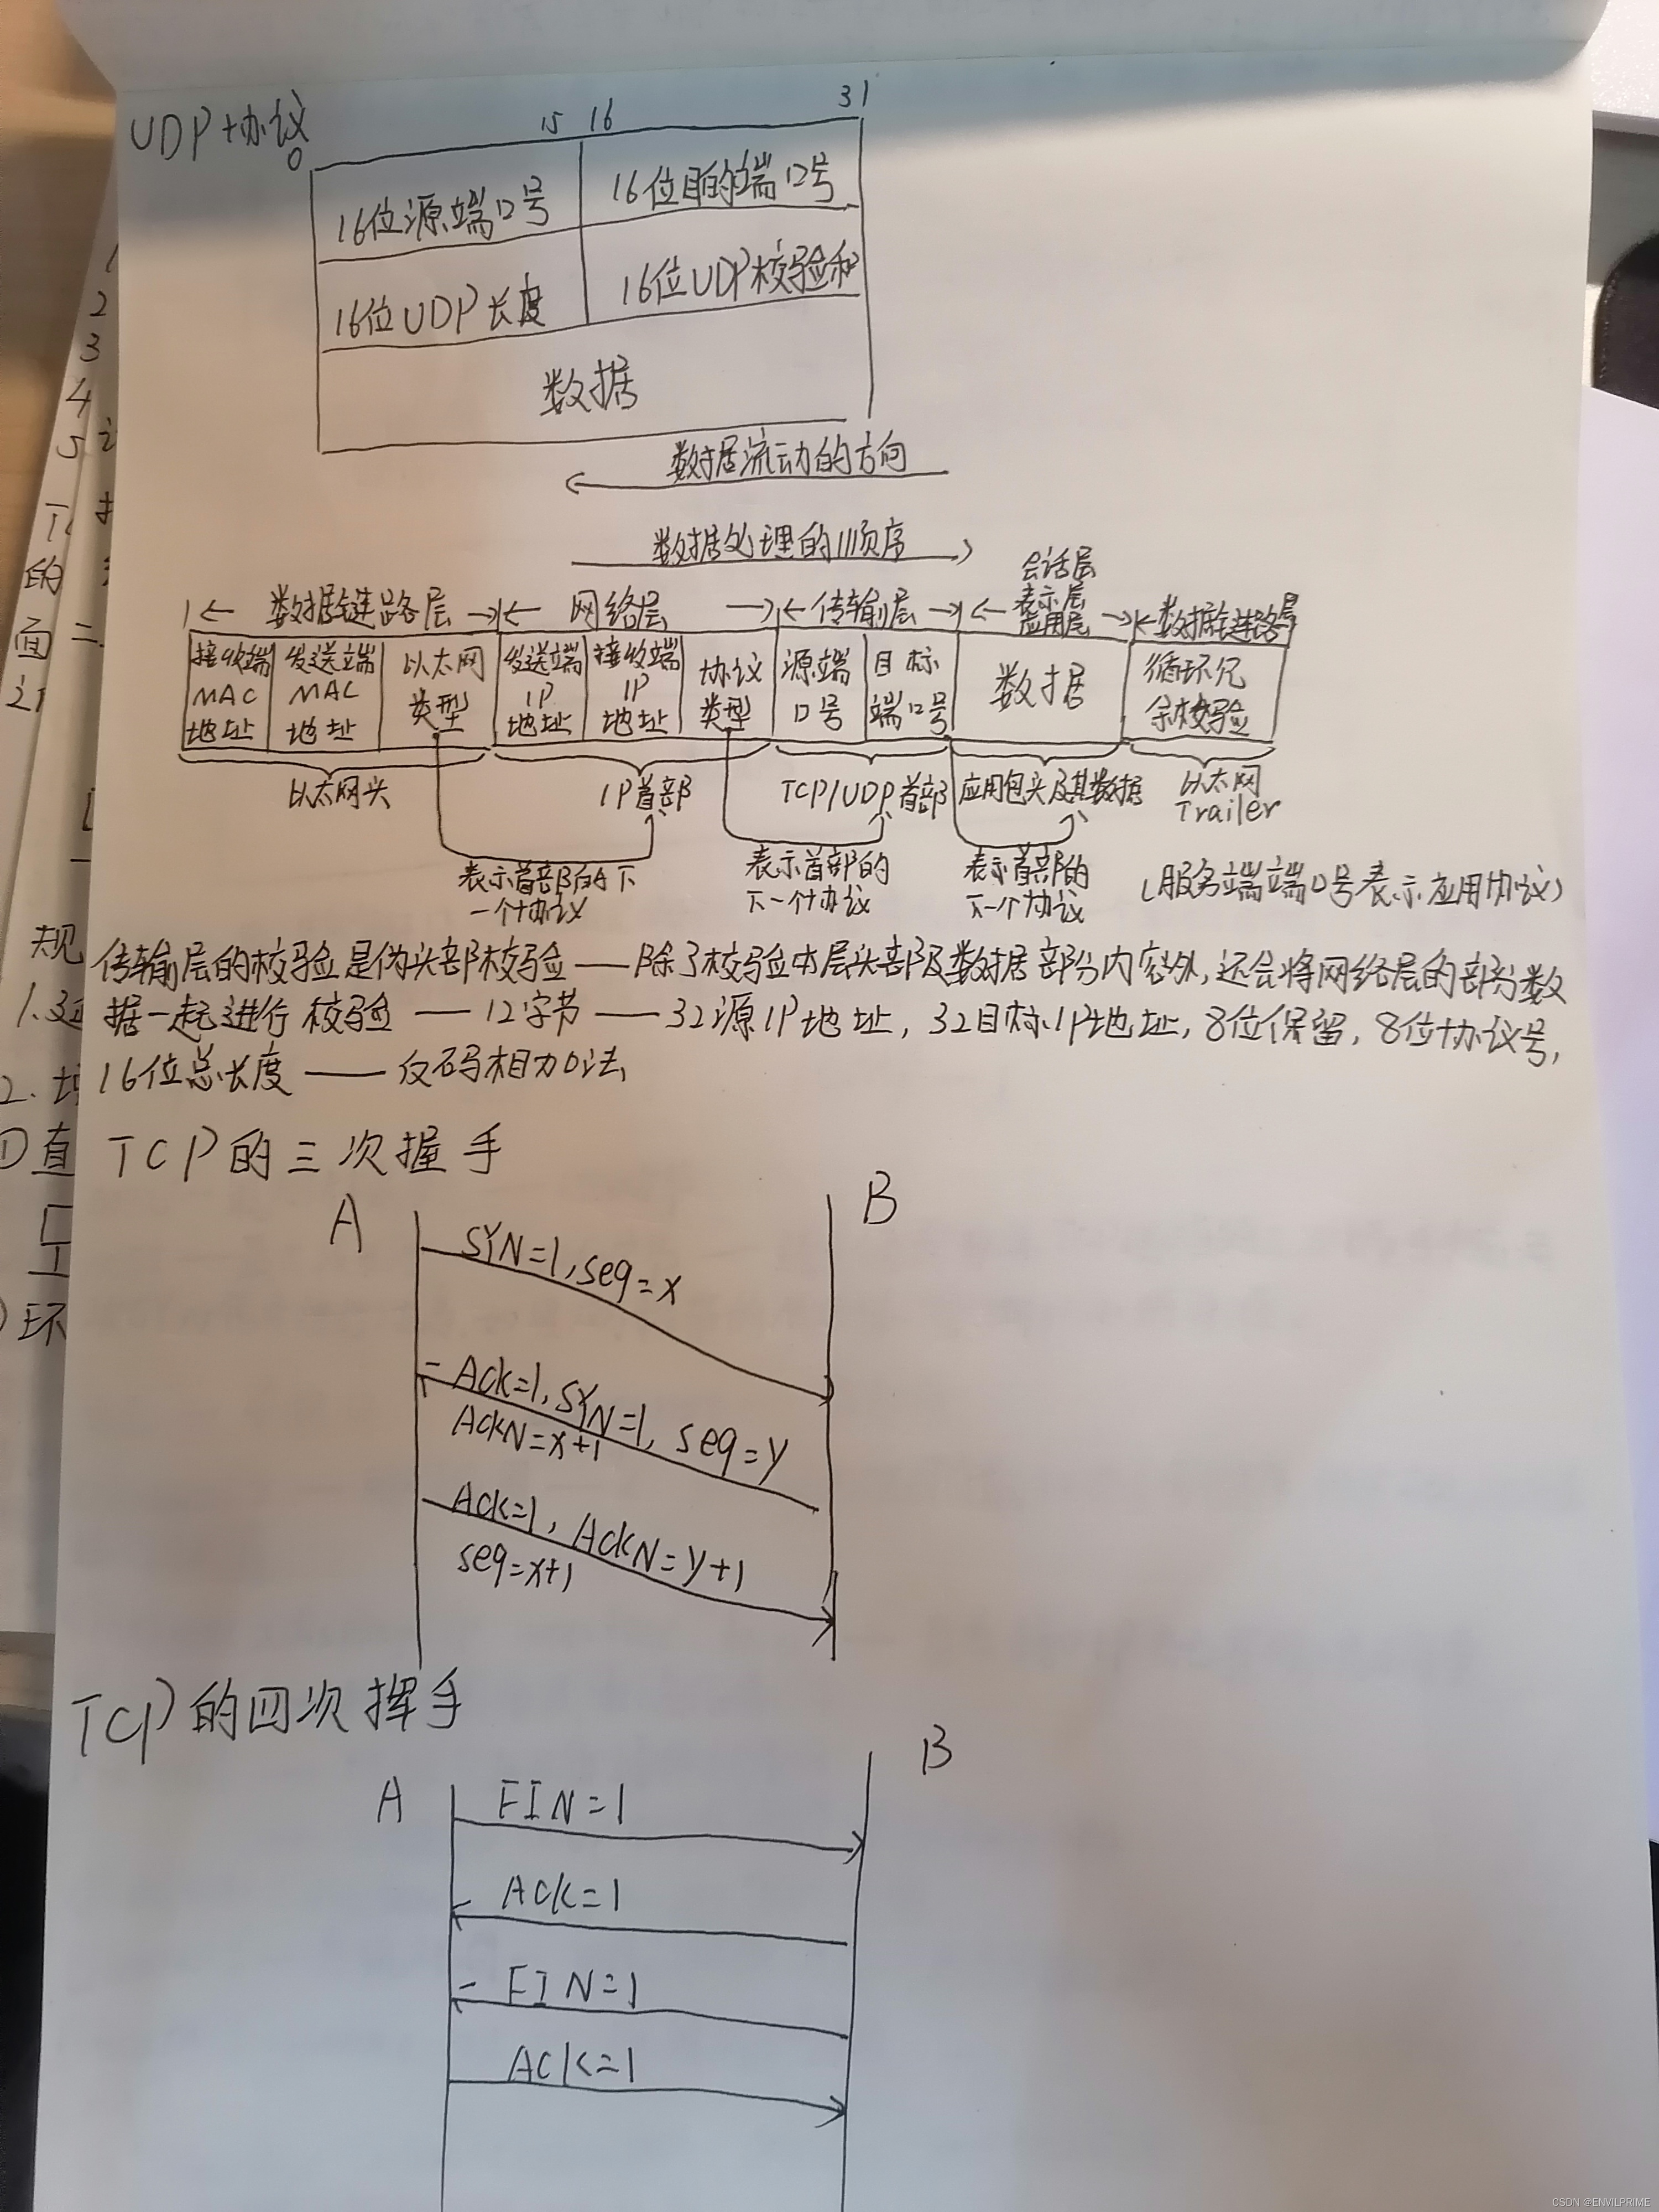 UDP协议
0 15 16 31
16位源端口号 16位目的端口号
16位UDP长度 16位UDP校验和
数据
数据流动的方向
数据处理的顺序
会话层
表示层
应用层
数据链路层 网络层 传输层 数据链路层
接收端MAC地址 发送端MAC地址 以太网类型 发送端IP地址 接收端IP地址 协议类型 源端口号 目标端口号 数据 循环冗余校验
以太网头 IP首部 TCP/UDP首部 应用包头及其数据 以太网Trailer
表示首部的下一个协议 表示首部的下一个协议 表示首部的下一个协议 (服务端端口号表示应用协议)
传输层的校验是伪头部校验——除了校验本层头部及数据部分内容外,还会将网络层的部分数
据一起进行校验——12字节——32源IP地址,32目标IP地址,8位保留,8位协议号,
16位总长度——反码相加法
TCP的三次握手
A B
SYN=1,seq=x
Ack=1,SYN=1,seq=y
AckN=x+1
Ack=1,AckN=y+1
seq=x+1
TCP的四次挥手
A B
FIN=1
ACK=1
FIN=1
ACK=1
1
2
3
4
5
的
面 二
规
1.延
2.
①直
环
CSDN @ENVILPRIME